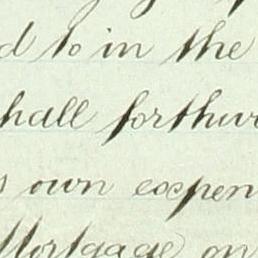 d to in the
hall forthw
s own expen
Mortgage on